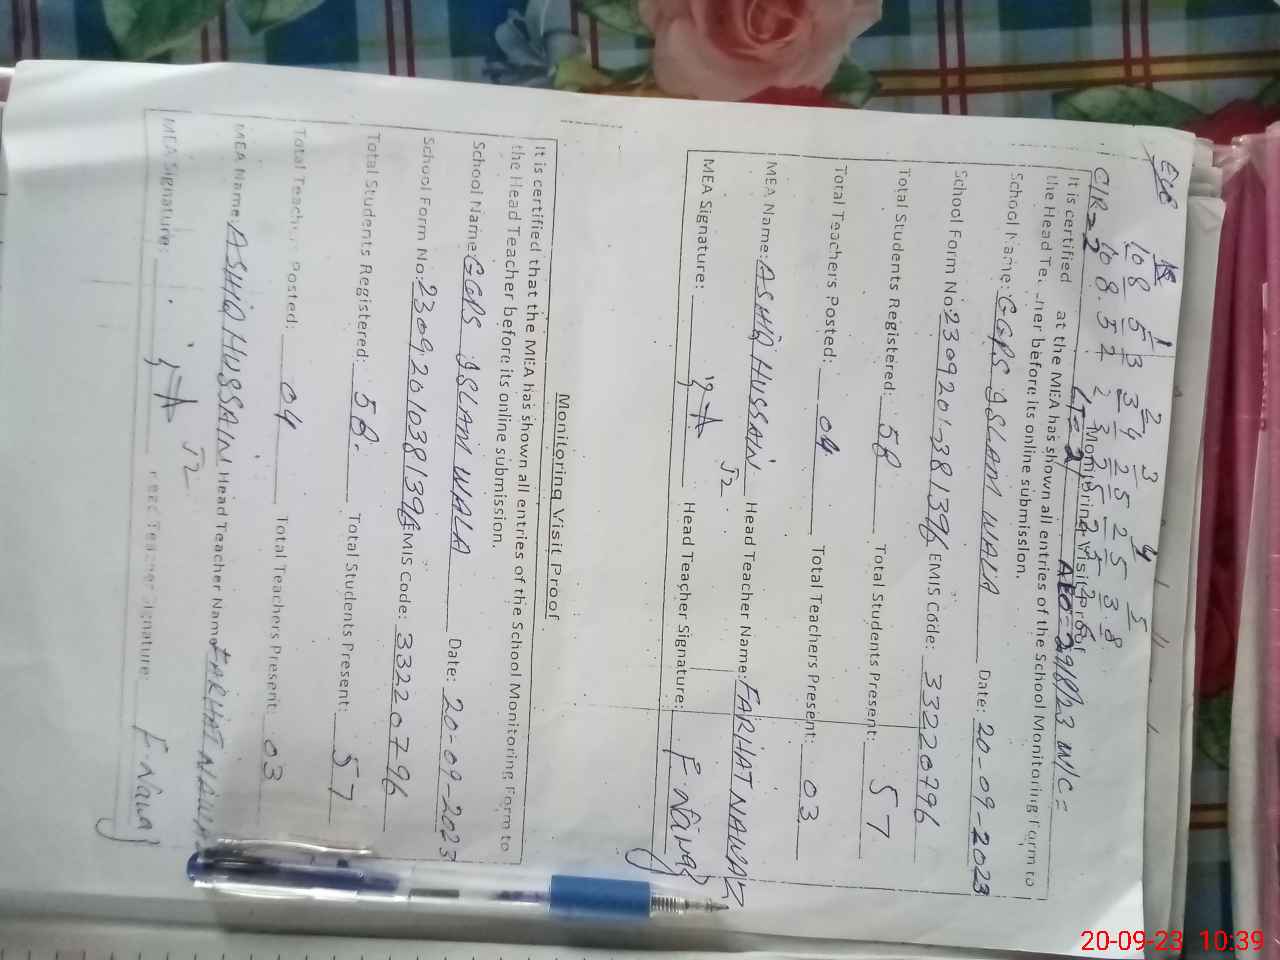 ECE 1 2 3 4 5
C/R=2
LT= 2 AEO= 29/8/23 W/C=
Monitoring Visit Proof
It is certified at the MEA has shown all entries of the School Monitoring Form to
the Head Te ner before its online submission.
School Name: GGPS ISLAM WALA Date: 20-09-2023
School Form No: EMIS Code: 33220796
Total Students Registered: 58 Total Students Present: 57
Total Teachers Posted: 04 Total Teachers Present: 03
MEA Name: ASHIQ HUSSAIN Head Teacher Name: FARHAT NAWAZ
MEA Signature: Head Teacher Signature: F. Nawaz
Monitoring Visit Proof
It is certified that the MEA has shown all entries of the School Monitoring Form to
the Head Teacher before its online submission.
School Name: GGPS ISLAM WALA Date: 20-09-2023
School Form No: EMIS Code: 33220796
Total Students Registered: 58. Total Students Present: 57
Total Teachers Posted: 04 Total Teachers Present: 03
MEA Name: ASHIQ HUSSAIN Head Teacher Name: FARHAT NAWAZ
MEA Signature: Head Teacher Signature: F. Nawaz
20-09-23 10:39